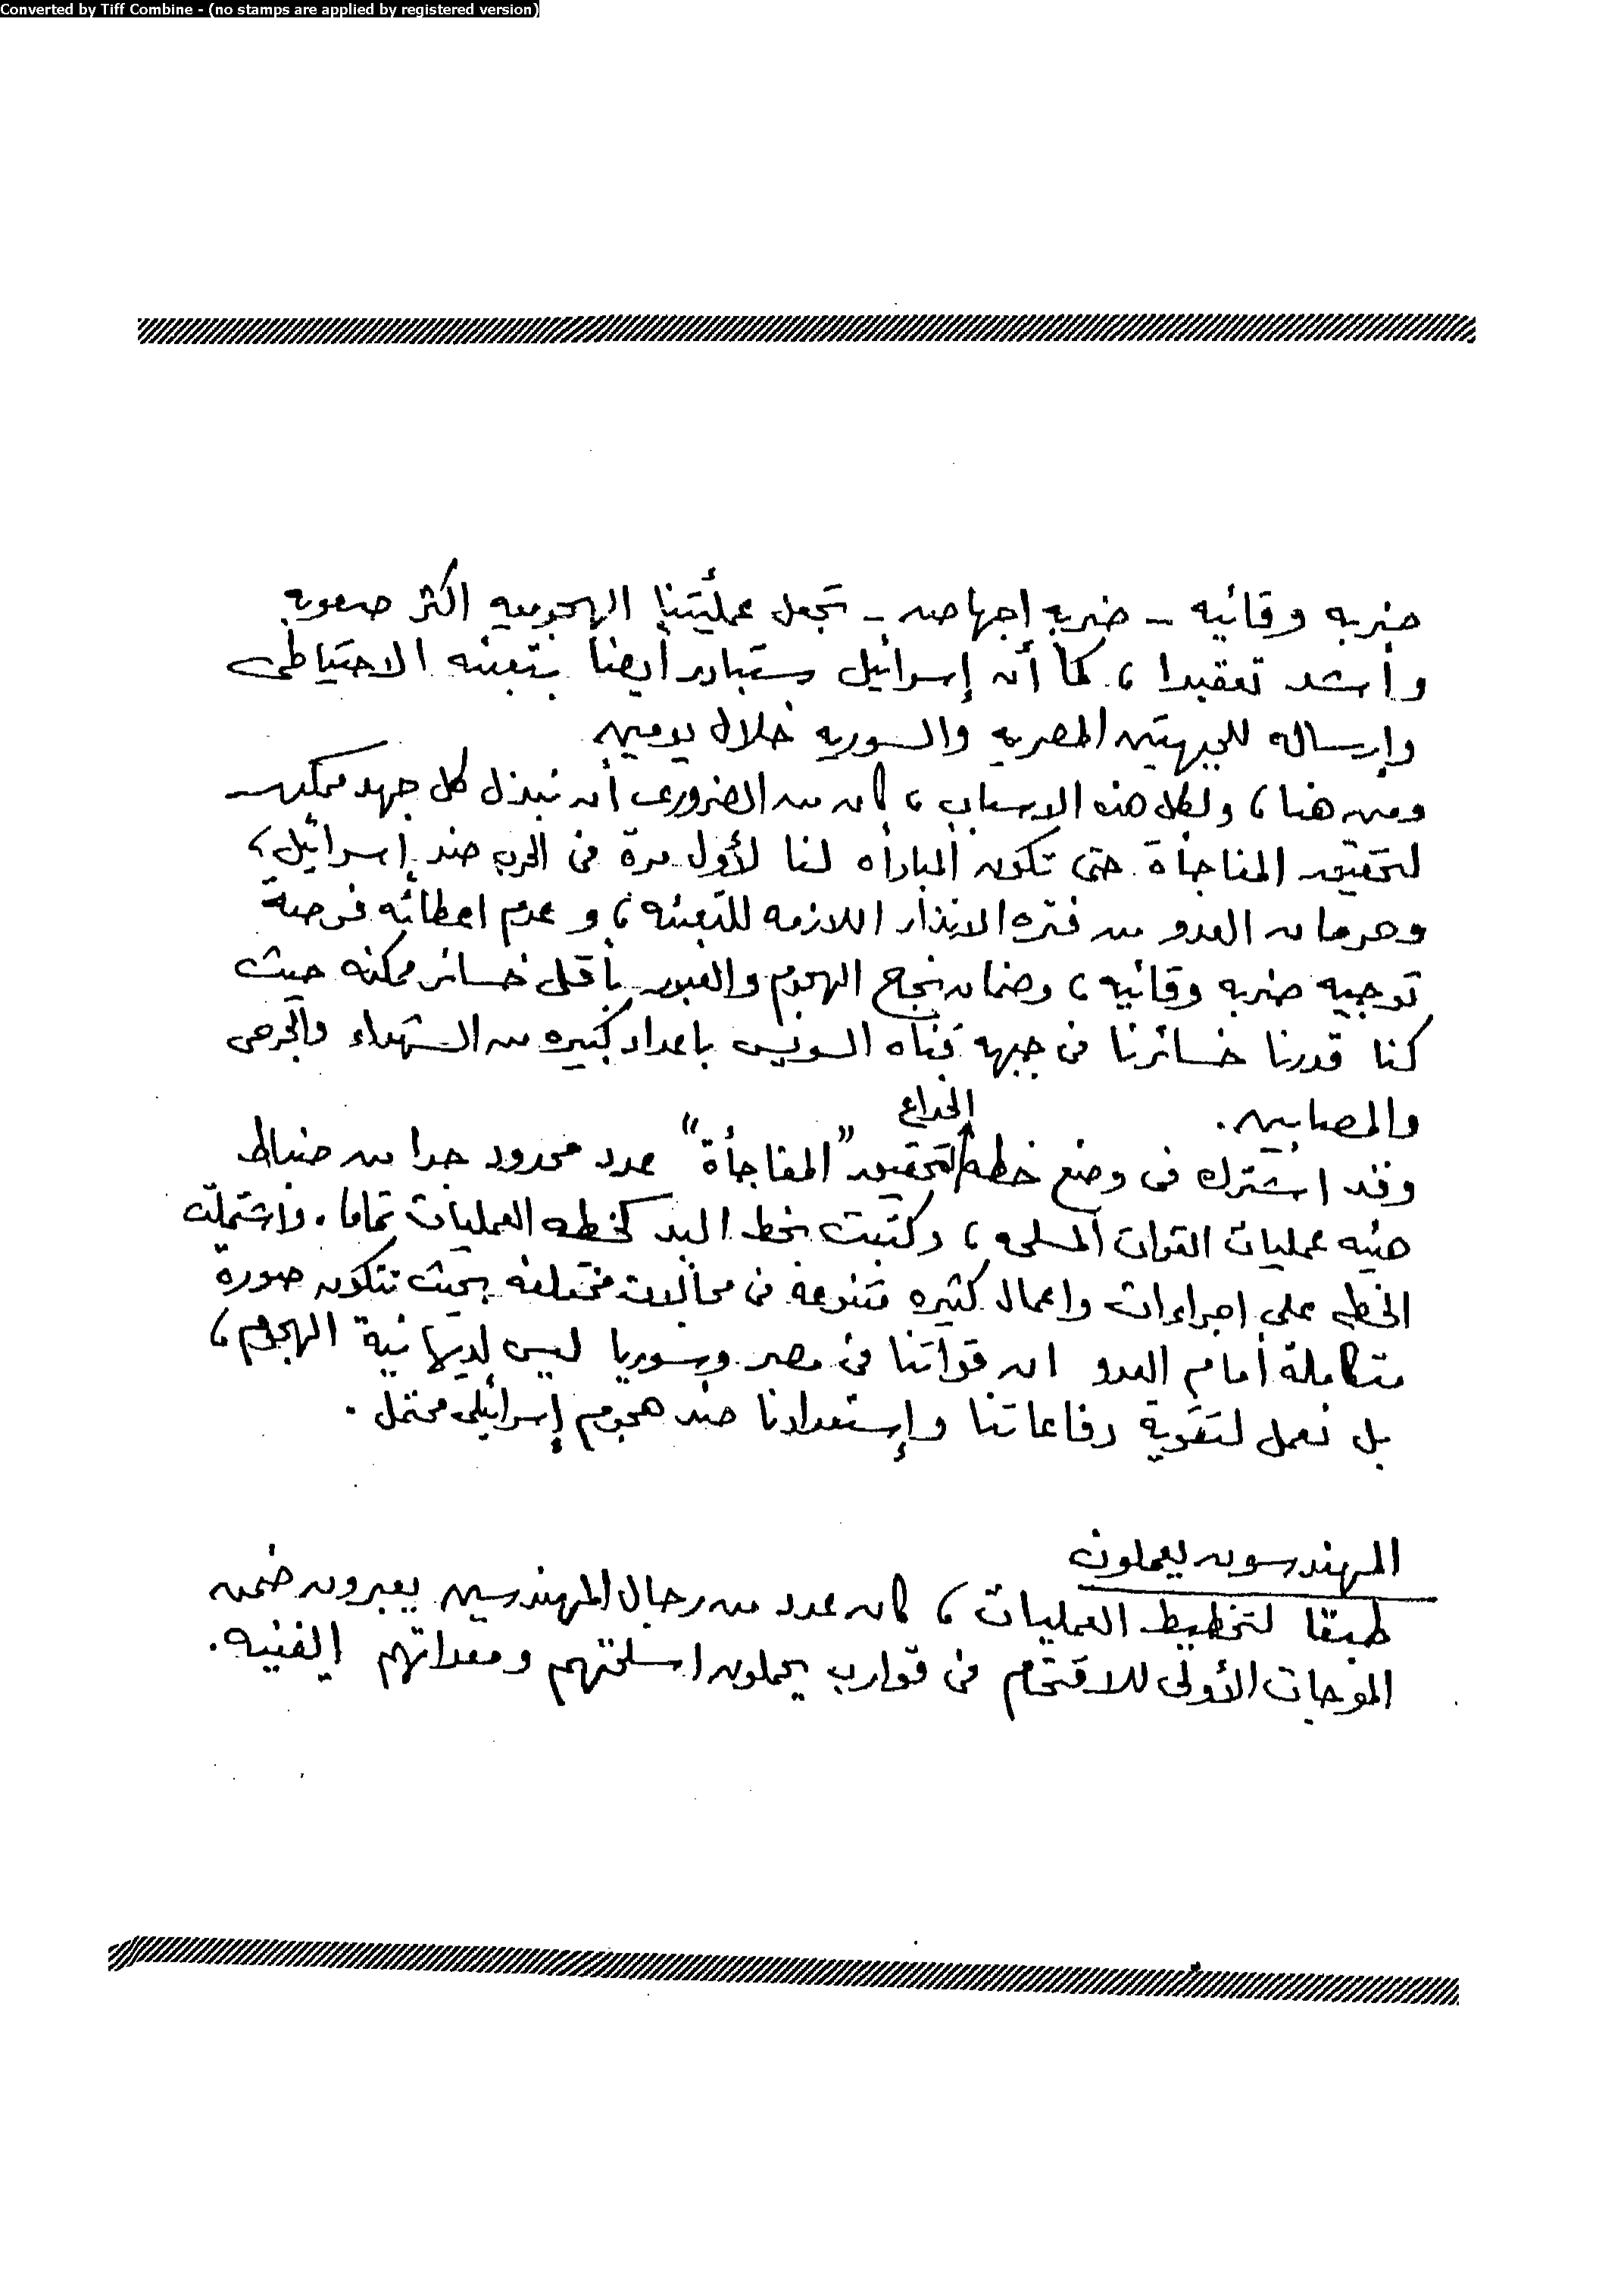 Converted by Tiff Combine - (no stamps are applied by registered version)
ضربه وقائيه - ضربه إجهاضه - تجعل عمليتنا الهجوميه اكثر صعوبه
وأشد تعقيدا ، كما أن إسرائيل ستبادر أيضا بتعبئه الاحتياطى
وإرساله للجبهتين المصريه والسوريه خلال يومين
ومن هنا ، ولكل هذه الاسباب ، كان من الضرورى أن نبذل كل جهد ممكن
لتحقيق المفاجأة حتى تكون المبادأه لنا لأول مرة فى الحرب ضد إسرائيل ،
وحرمان العدو من فتره الانذار اللازمه للتعبئه ، و عدم اعطائه فرصة
توجيه ضربه وقائيه ، وضمان نجاح الهجوم والعبور بأقل خسائر ممكنه حيث
كنا قدرنا خسائرنا فى جبهه قناه السويس باعداد كبيره من الشهداء والجرحى
والمصابين .
الخداع
وقد اشترك فى وضع خطه لتحقيق "المفاجأة" عدد محدود جدا من ضباط
هيئه عمليات القوات المسلحه ، وكتبت بخط اليد كخطه العمليات تماما . واشتملت
الخطه على اجراءات واعمال كثيره متنوعه فى مجالات مختلفه بحيث تتكون صورة
متكاملة أمام العدو ان قواتنا فى مصر وسوريا ليس لديها نية الهجوم ،
بل نعمل لتقوية دفاعاتنا وإستعدادنا ضد هجوم إسرائيلى محتمل .
المهندسون يعملون
طبقا لتخطيط العمليات ، كان عدد من رجال المهندسين يعبرون ضمن
الموجات الأولى للاقتحام فى قوارب يحملون اسلحتهم ومعداتهم الفنيه .